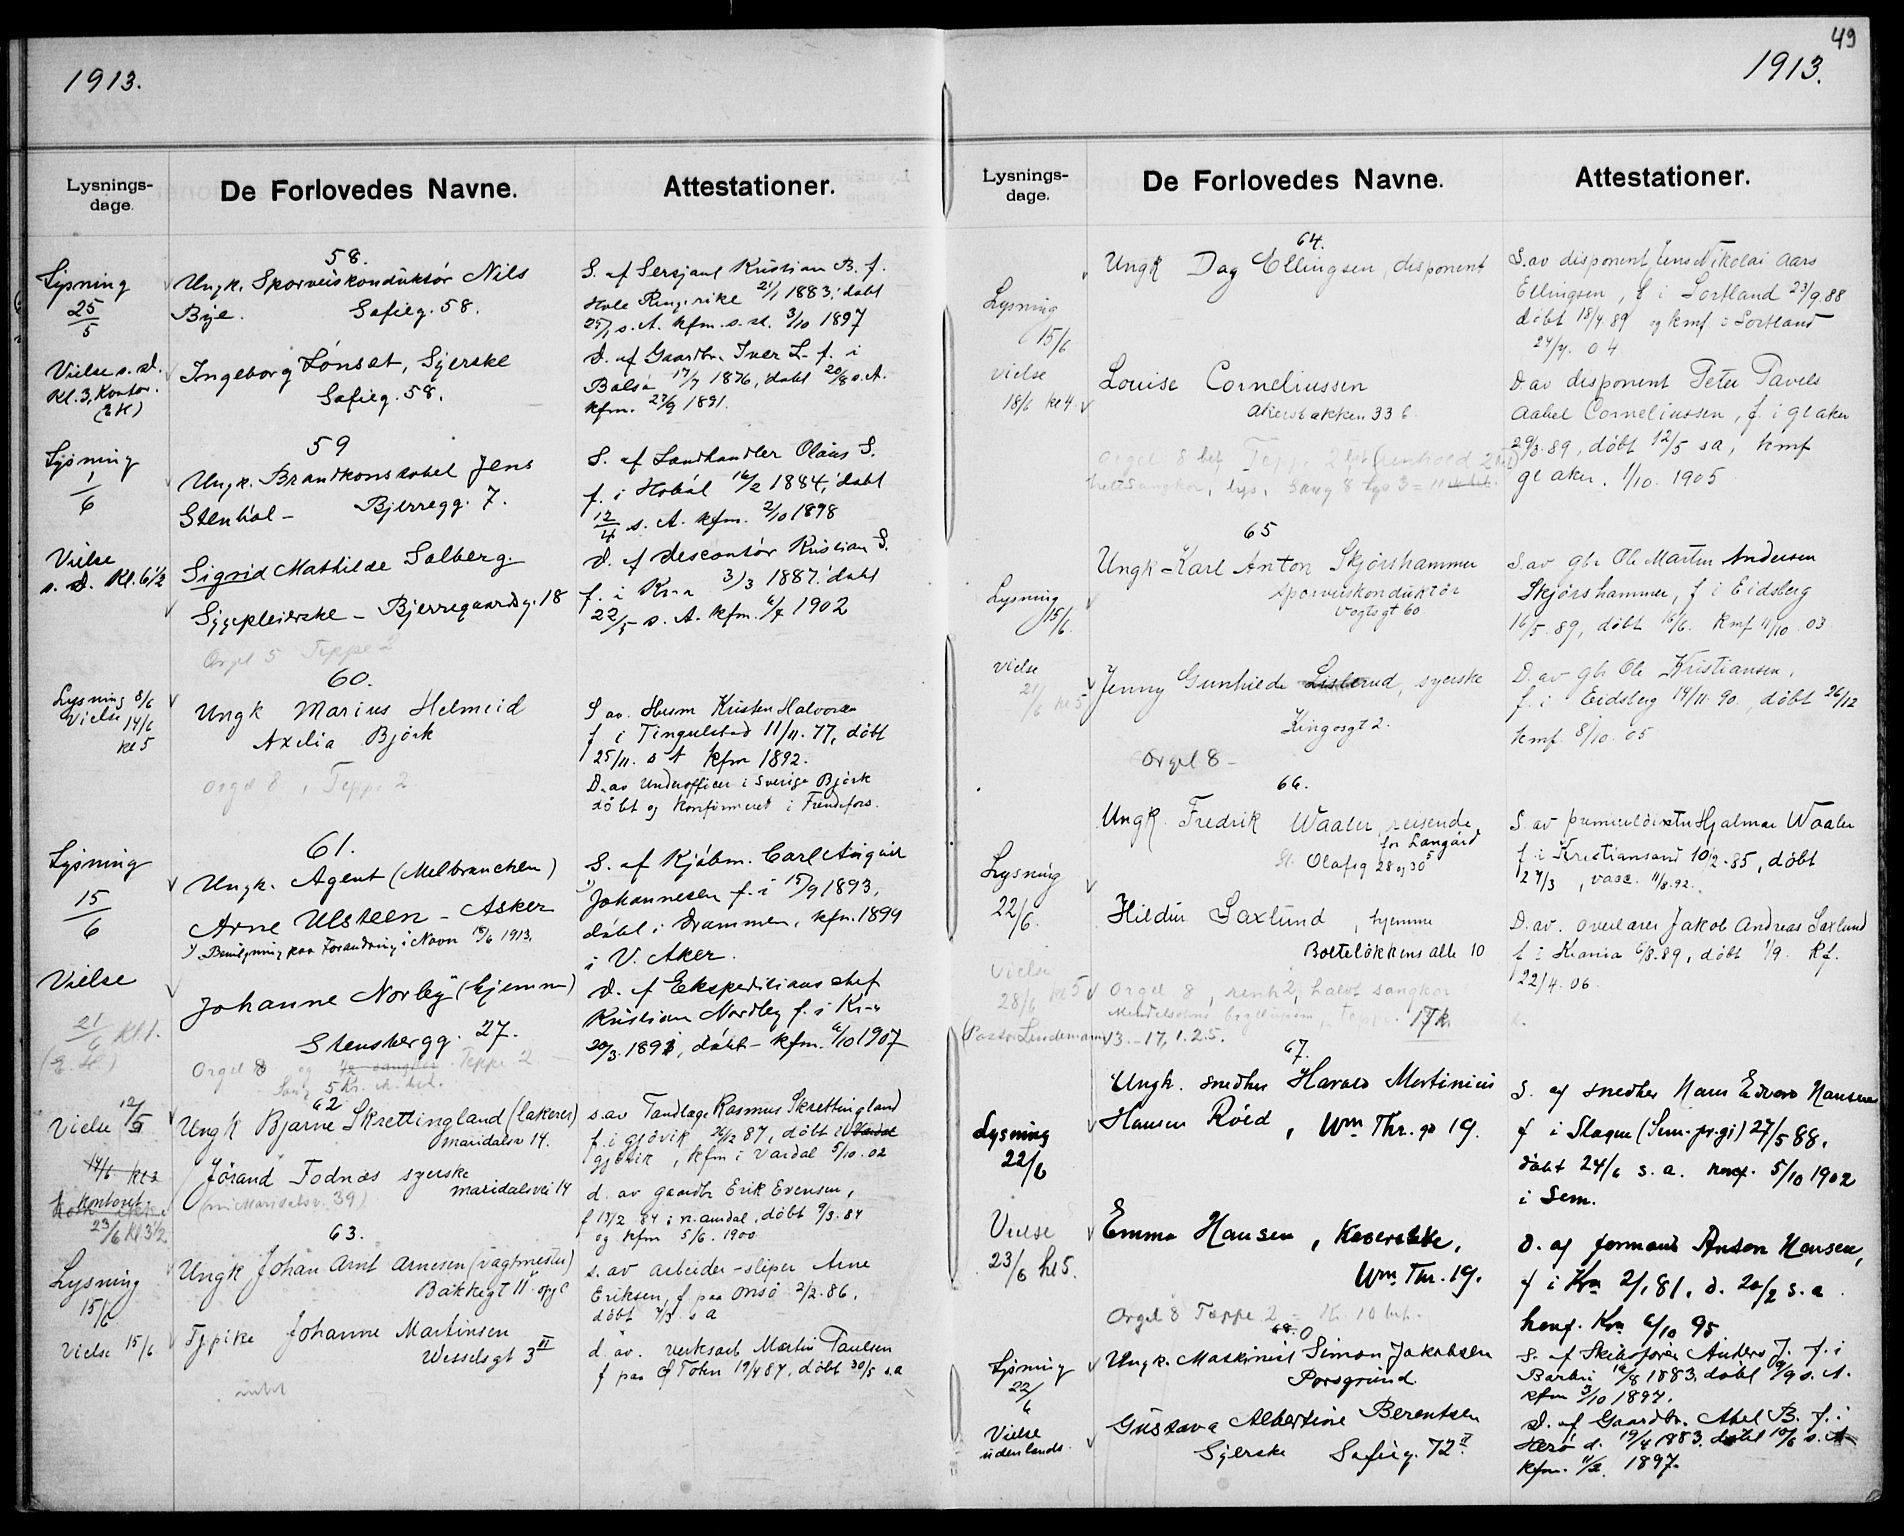 1913.
Lysnings-
dage.
De Forlovedes Navne.
Attestationer.
58.
Lysning
25/5
Ungk. Sporveiskonduktør Nils
Bye. Sofieg. 58.
S. af Sersjant Kristian B. f.
Hole Ringerike 21/1 1883, døbt
25/ s. A. kfm. s. st. 3/10 1897
Vielse s. d.
Kl. 3, Kontor.
Ingeborg Lønset, Syerske
Sofieg. 58.
D. af Gaardbr. Iver L. f. i
17/7 1876, døbt 20/8 s. A.
kfm. 27/9 1891.
59
Lysning
1/6
Ungk. Brandkonstabel Jens
Stenhol - Bjerregg. 7.
S. af Landhandler Olaus S.
f. i Hobøl 16/2 1884, døbt
12/4 s. A. kfm. 2/10 1898
Vielse
s. D. Kl. 6 1/2
Sigrid Mathilde Solberg
Sygepleierske - Bjerregaardsg. 18
D. af Kristian S.
f. i Kr.a 3/3 1887, døbt
22/5 s. A. kfm. 6/4 1902
Orgel 5 Teppe 2
60.
Lysning 8/6
Vielse 14/6
kl 5
Ungk Marius Helmeid
Axelia Björk
S av. Husm Kristen Halvorsen
f i Tingelstad 11/11. 77, döbt
25/11. s A kfm 1892.
D. av Underofficer i Sverige Björk
döbt og konfirmeret i Frendefors.
Orgel 8, Teppe 2
61.
Lysning
15/6
Ungk. Agent (Melbranchen)
Arne Ulsteen - Asker
1) Bevilgning paa Forandring i Navn 18/6 1913.
S. af Kjøbm. Carl August
1) Johannesen f. i 15/9 1893,
døbt i Drammen, kfm. 1899
i V. Aker.
Vielse
21/6 Kl. 1.
Johanne Norby (hjemme)
Stensbergg. 27.
D. af Ekspeditionschef
Kristian Nordby f. i Kr.a
20/3. 1891, døbt - kfm. 6/10 1907
Orgel 8 og Teppe 2
Sang 5 Kr.
62
Vielse 12/5
Ungk Bjarne Skrettingland (lakerer)
maridalsv 14.
s. av Tandlæge Rasmus Skrettingland
f. i gjövik, 26/12 87, döbt i Vardal
gjövik, kfm i Vardal 5/10. 02
14/6 kl 2
kontoret
23/6 Kl. 3 1/2
Jörand Todnæs syerske
maridalsvei 14
(nu Maridalsv. 39)
d. av gaardbr Erik Evensen,
f 13/2 84 i n. aurdal, döbt 9/3. 84
og kfm 5/6. 1900
63.
Lysning
15/6
Ungk Johan Arnt Arnesen (vagtmester)
Bakkegt 11 opg C
s. av arbeider - sliper Arne
Eriksen, f paa Onsö 2/2. 86,
döbt 7/3 s a
Vielse 15/6
Tjpike Johanne Martinsen
Wesselsgt 3 II
d. av. verksarb Martin Paulsen
f paa Ø Toten 19/4 87, döbt 30/5 s. a
intet
49
1913.
Lysnings-
dage.
De Forlovedes Navne.
Attestationer.
64.
Lysning
15/6
Ungk Dag Ellingsen, disponent
S. av disponent Jens Nikolai Aars
Ellingsen, f i Sortland 23/9. 88
döbt 18/4 89 og kmf i Sortland
24/7. 04
Vielse
18/6 kl 4.
Louise Corneliussen
Akersbakken 33 b.
D. av disponent Peter Pavels
Aabel Corneliussen, f. i gl aker
29/3. 89, döbt 12/5 sa, kmf
gl aker. 1/10. 1905
65
Lysning
15/6.
Ungk - Karl Anton Skjörshammer
sporveiskonduktör
Vogtsgt 60.
S. av gbr Ole Martin Andersen
Skjörshammer, f i Eidsberg
16/5. 89, döbt 16/6. Kmf 11/10. 03
Vielse
21/6 kl 5
Jenny Gunhilde Lislerud, syerske
Kingosgt 2.
D. av gbr Ole Kristiansen,
f. i Eidsberg 14/11. 90, döbt 26/12
kmf 8/10. 05
Orgel 8 -
66.
Lysning
22/6.
Ungk. Fredrik Waaler, reisende
for Langård
St. Olafsg 28 og 30
S. av premierlöitn Hjalmar Waaler
f. i Kristiansand 10/2. 85, döbt
27/3, vacc. 11/8. 92.
Hildur Saxlund, hjemme
Bolteløkkens alle 10
D. av. overlærer Jakob Andreas Saxlund
f i Krania 6/8. 89, döbt 1/9. Kf.
22/4. 06.
Vielse
28/6 kl 5
(Pastor Lindemann)
Orgel 8, renh 2, halvt sangkor
13. - 17, 1. 2. 5.
67.
Lysning
22/6
Ungk. snedker Harald Martinius
Hansen Röed, Wm Thr. gt 19.
S. af snedker Hans Edvard Hansen
f i Slagen (Sem. pr. gj) 27/5 88,
döbt 24/6 s. a. konf. 5/10 1902
i Sem.
Vielse
23/6 kl 5.
Emma Hansen,
Wm Thr. 19.
D. af formand Anton Hansen,
f i Kra 2/1 81. d. 20/2 s. a.
konf. Kra 6/10 95.
Orgel 8 Tæppe 2 - Kr. 10 bet.
68.
Lysning
22/6
Ungk. Maskinist Simon Jakobsen
Porsgrund.
S. af Skibsfører Anders J. f. i
Barbu 12/8 1883, døbt 9/9 s. A.
kfm 3/10 1897.
Vielse
udenlands.
Gustava Albertine Berentsen
Syerske Sofieg. 72 II.
D. af Gaardbr. Abel B. f. i
Herø d. 19/4 1883. døbt 10/6 s. A
kfm. 1897.